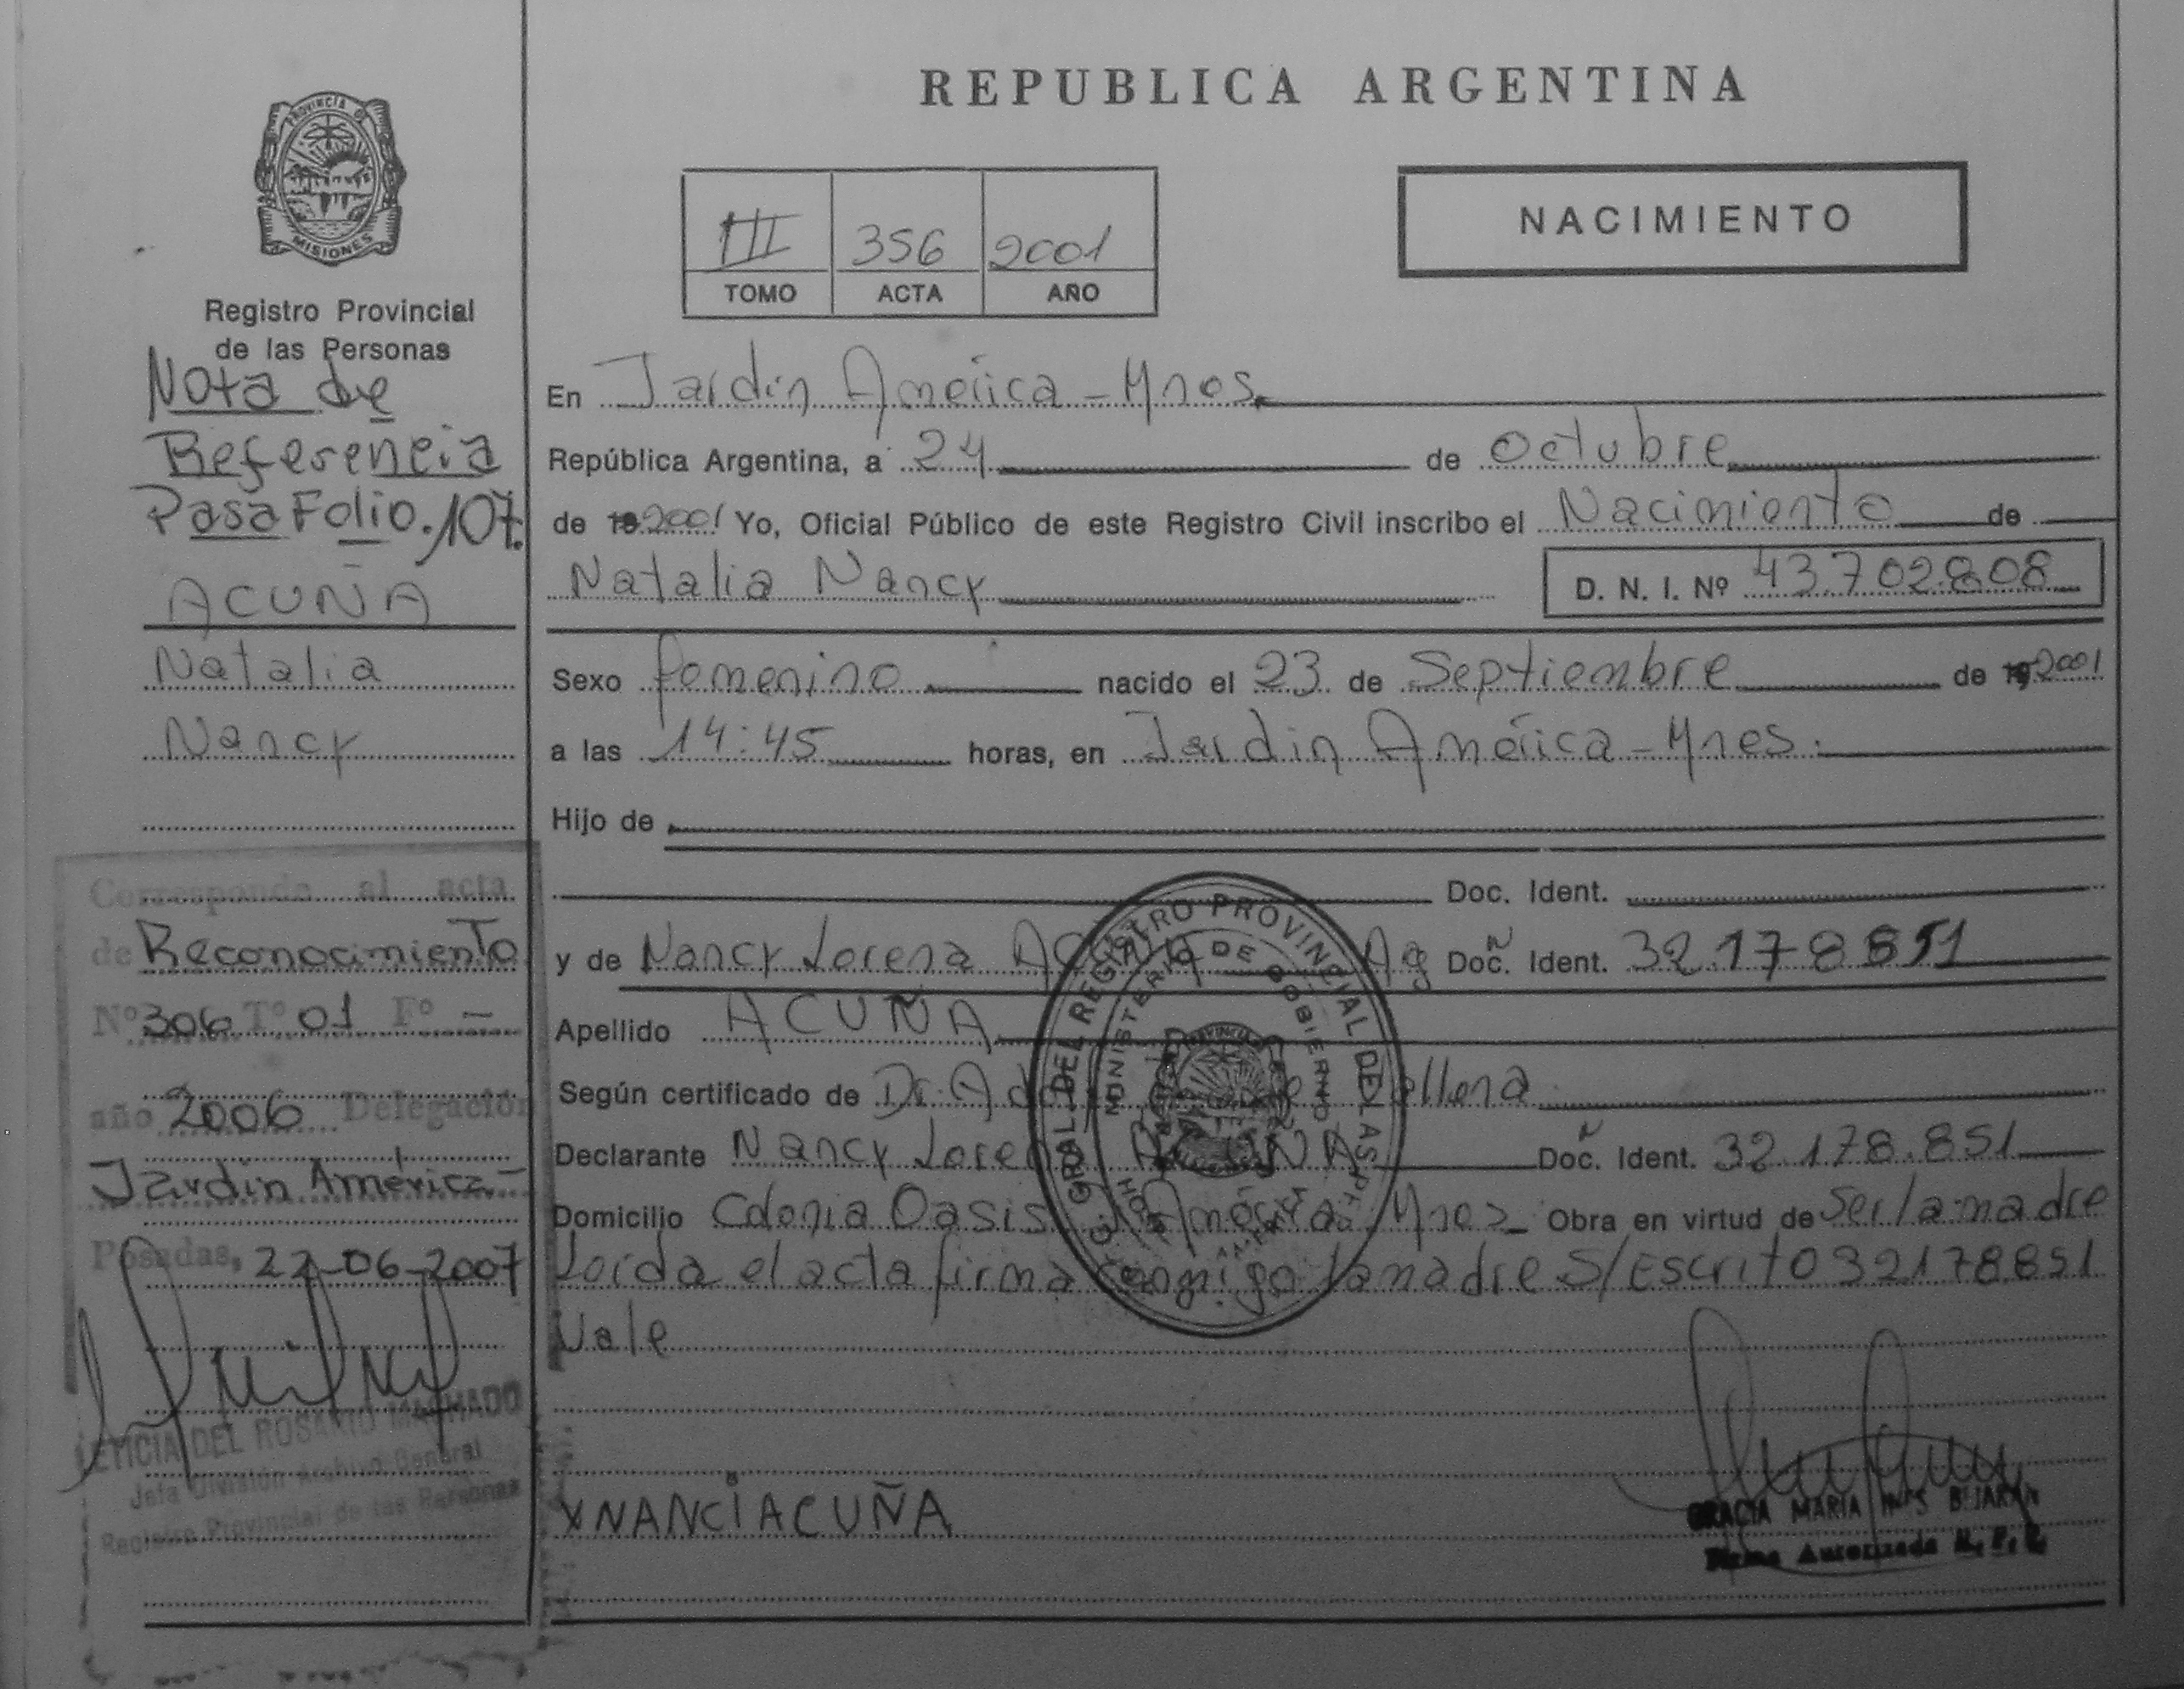 REPUBLICA ARGENTINA
PROVINCIA DE
MISIONES
Registro Provincial
de las Personas
Nota de
Referencia
Pasa Folio.107.
ACUÑA
Natalia
Nancy
Corresponde al acta
de Reconocimiento
Nº 306 Tº 01 Fº —
año 2006 Delegación
Jardín América.-
Posadas, 22-06-2007
LETICIA DEL ROSARIO MACHADO
Jefa División Archivo General
Registro Provincial de las Personas
III 356 2001
TOMO ACTA AÑO
NACIMIENTO
En Jardín América - Mnes.
República Argentina, a 24 de octubre
de 19 2001 Yo, Oficial Público de este Registro Civil inscribo el Nacimiento de
Natalia Nancy D. N. I. Nº 43.702.808
Sexo femenino nacido el 23 de Septiembre de 19 2001
a las 14:45 horas, en Jardín América - Mnes.
Hijo de
Doc. Ident.
y de Nancy Lorena Ag Doc. Ident. 32.178851
Apellido ACUÑA
Según certificado de Dr.
Declarante Nancy Lorena ACUÑA Doc. Ident. 32.178.851
Domicilio Colonia Oasis América Mnes Obra en virtud de ser la madre
Leída el acta firma conmigo la madre S/Escrito 32178851
Vale
GRAL. DEL REGISTRO PROVINCIAL DE LAS
MINISTERIO DE GOBIERNO
X NANCI ACUÑA
GRACIA MARIA INES BEJARAN
Firma Autorizada